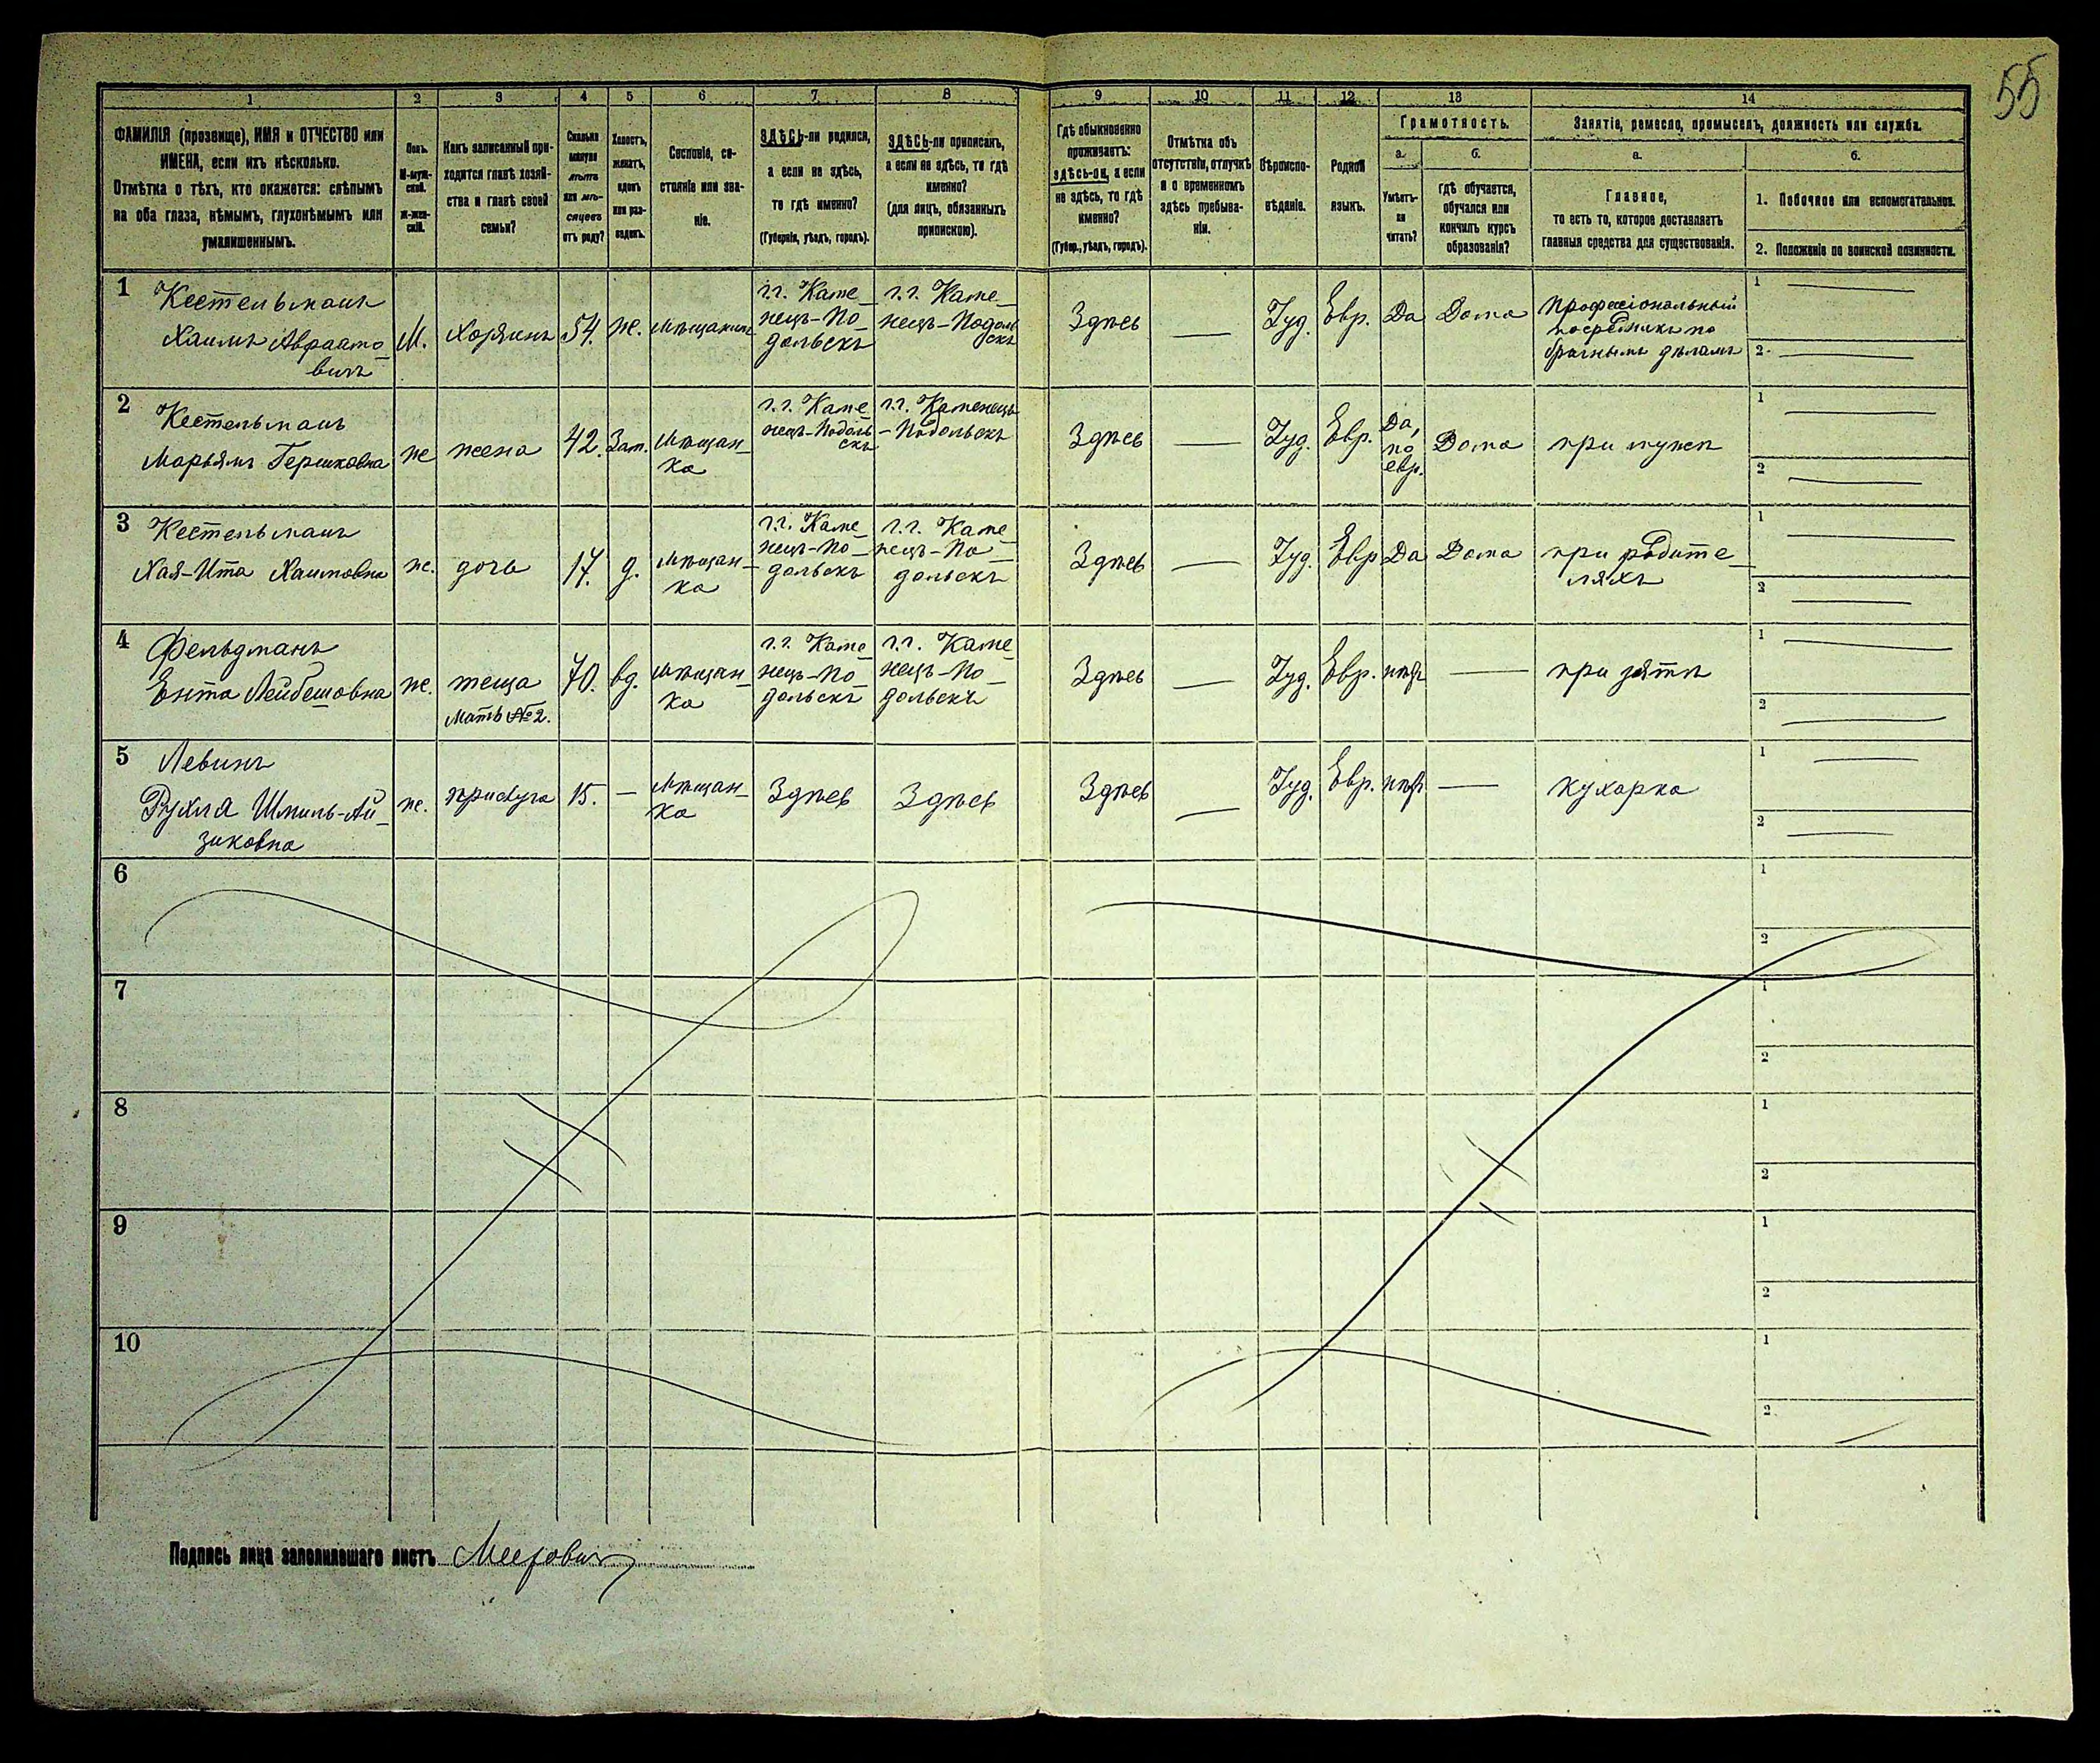 55
1 2 3 4 5 6 7 8 9 10 11 12 13 14
ФАМИЛІЯ (прозвище), ИМЯ и ОТЧЕСТВО или
ИМЕНА, если ихъ нѣсколько.
Отмѣтка о тѣхъ, кто окажется: слѣпымъ
на оба глаза, нѣмымъ, глухонѣмымъ или
умалишеннымъ.
Полъ.
М-муж-
ской.
Ж-жен-
скій.
Какъ записанный при-
ходится главѣ хозяй-
ства и главѣ своей
семьи?
Сколько
минуло
лѣтъ
или мѣ-
сяцевъ
отъ роду?
Холостъ,
женатъ,
вдовъ
или раз-
веденъ.
Сословіе, со-
стояніе или зва-
ніе.
ЗДѢСЬ-ли родился,
а если не здѣсь,
то гдѣ именно?
(Губернія, уѣздъ, городъ).
ЗДѢСЬ-ли приписанъ,
а если не здѣсь, то гдѣ
именно?
(для лицъ, обязанныхъ
припискою).
Гдѣ обыкновенно
проживаетъ:
здѣсь-ли, а если
не здѣсь, то гдѣ
именно?
(Губер., уѣздъ, городъ).
Отмѣтка объ
отсутствіи, отлучкѣ
и о временномъ
здѣсь пребыва-
ніи.
Вѣроиспо-
вѣданіе.
Родной
языкъ.
Грамотность.
а.
Умѣетъ-
ли
читать?
б.
Гдѣ обучается,
обучался или
кончилъ курсъ
образованія?
Занятіе, ремесло, промыселъ, должность или служба.
а.
Главное,
то есть то, которое доставляетъ
главныя средства для существованія.
б.
1. Побочное или вспомогательное.
2. Положеніе по воинской повинности.
1
Кестельманъ
Хаимъ Авраамо-
вичъ
М.
Хозяинъ
54.
ж.
Мѣщанинъ
г.г. Каме-
нецъ-По-
дольскъ
г.г. Каме-
нецъ-Подоль
скъ
Здѣсь
—
Іуд.
Евр.
Да
Дома
Професіональный
посредникъ по
брачнымъ дѣламъ
1
2
2
Кестельманъ
Марьямъ Гершковна
ж
жена
42.
Зам.
Мѣщан-
ка
г.г. Каме
нецъ-Подоль
скъ
г.г. Каменецъ
-Подольскъ
Здѣсь
—
Іуд.
Евр.
Да,
по
евр.
Дома
при мужѣ
1
2
3
Кестельманъ
Хая-Ита Хаимовна
ж.
дочь
17.
д.
Мѣщан-
ка
г.г. Каме-
нецъ-По-
дольскъ
г.г. Каме-
нецъ-По-
дольскъ
Здѣсь
—
Іуд.
Евр
Да
Дома
при родите-
ляхъ
1
2
4
Фельдманъ
Ента Лейбешовна
ж.
теща
мать №2.
70.
вд.
Мѣщан-
ка
г.г. Каме-
нецъ-По-
дольскъ
г.г. Каме-
нецъ-По-
дольскъ
Здѣсь
—
Іуд.
Евр.
нѣтъ
—
при зятѣ
1
2
5
Левинъ
Рухля Шмиль-Ай-
зиковна
ж.
прислуга
15.
—
Мѣщан-
ка
Здѣсь
Здѣсь
Здѣсь
—
Іуд.
Евр.
нѣтъ
—
кухарка
1
2
6
1
2
7
1
2
8
1
2
9
1
2
10
1
2
Подпись лица заполнившаго листъ Меерович